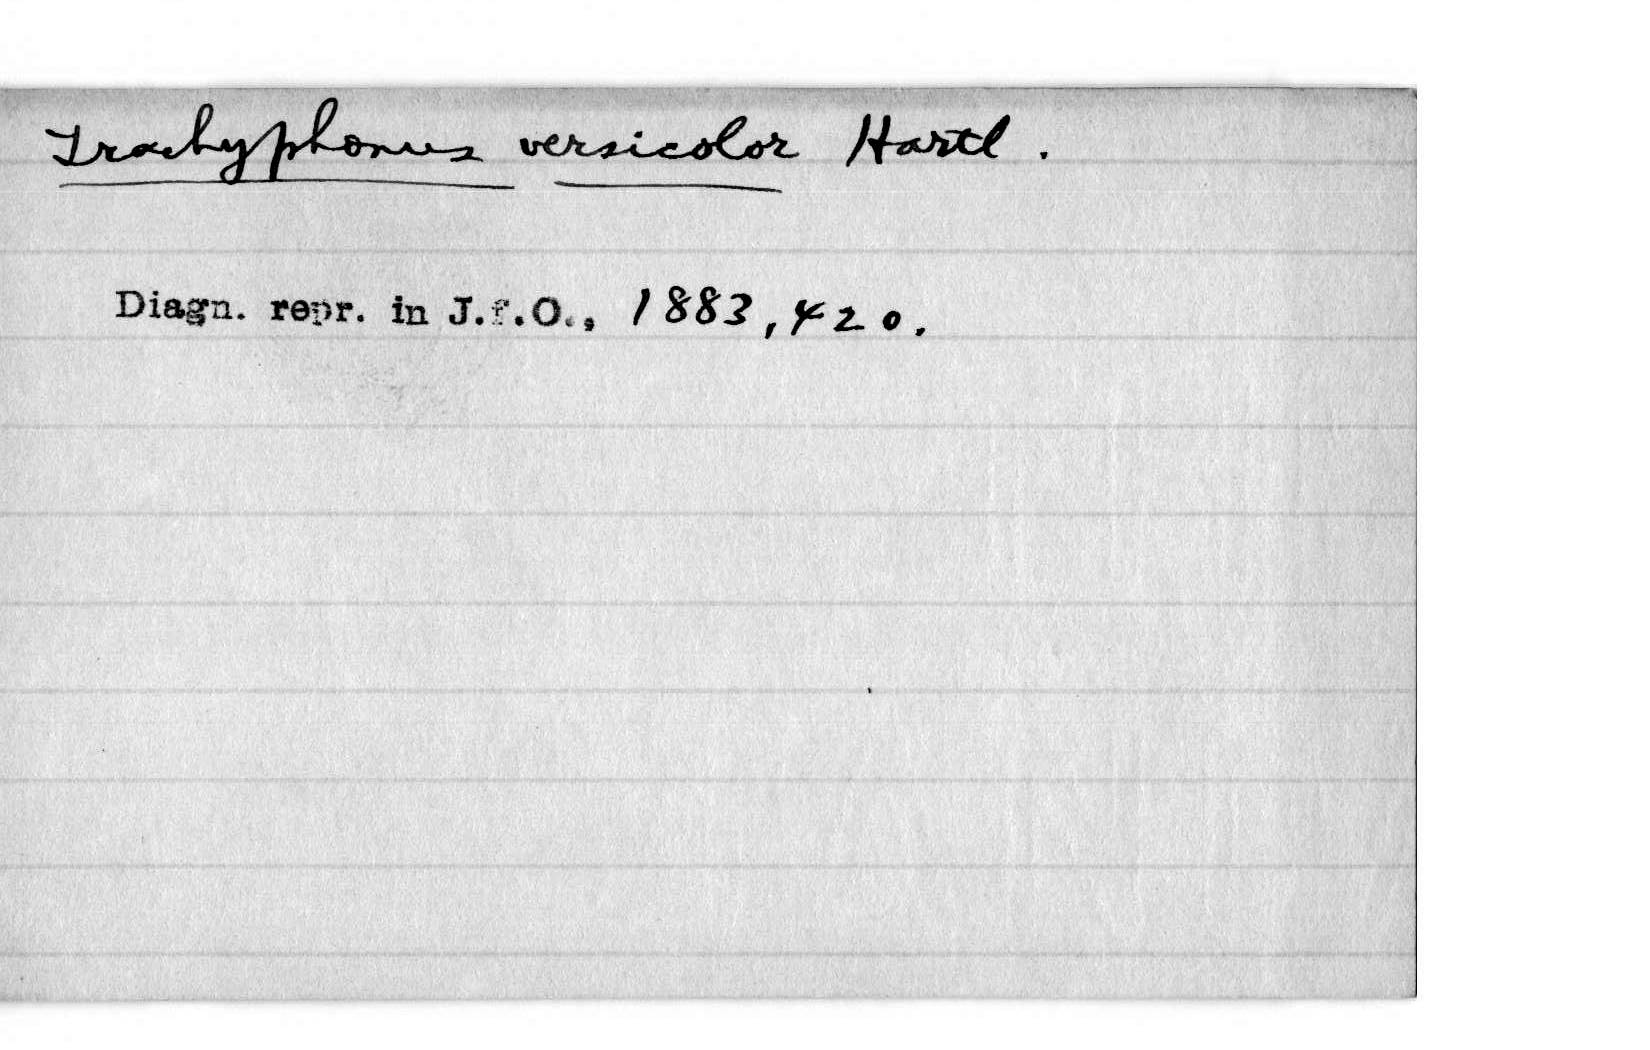 Trachyphonus versicolor Hartl.
Diagn. repr. in J.f.O., 1883, 420.